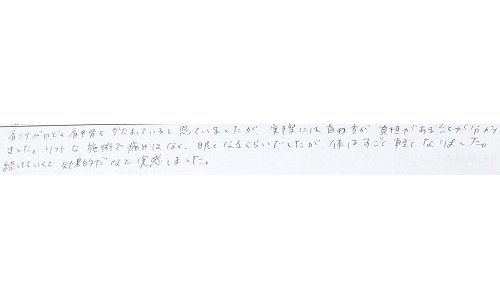 肩こりがひどく肩甲骨もかたまっていると思っていましたが、実際には首の方が負担があることが分かり
ました。ソフトな施術で痛みはなく、眠くなるくらいでしたが体はすごく軽くなりました。
続けていくと効果的だなと実感しました。